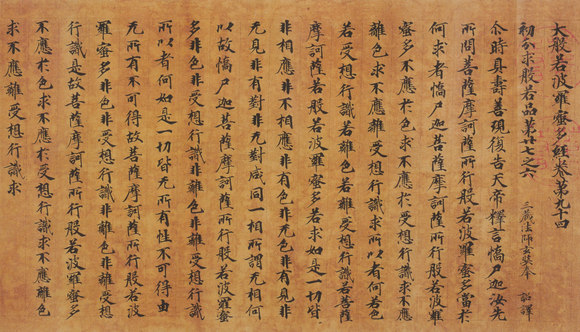 大般若波羅蜜多經卷第九十四
初分求般若品第廿七之六
三藏法師玄奘奉 詔譯
尒時具壽善現復告天帝釋言憍尸迦汝先
所問菩薩摩訶薩所行般若波羅蜜多當於
何求者憍尸迦菩薩摩訶薩所行般若波羅
蜜多不應於色求不應於受想行識求不應
離色求不應離受想行識求所以者何若色
若受想行識若離色若離受想行識若菩薩
摩訶薩若般若波羅蜜多若求如是一切皆
非相應非不相應非有色非无色非有見非
无見非有對非无對咸同一相所謂无相何
以故憍尸迦菩薩摩訶薩所行般若波羅蜜
多非色非受想行識非離色非離受想行識
所以者何如是一切皆无所有性不可得由
无所有不可得故菩薩摩訶薩所行般若波
羅蜜多非色非受想行識非離色非離受想
行識是故菩薩摩訶薩所行般若波羅蜜多
不應於色求不應於受想行識求不應離色
求不應離受想行識求